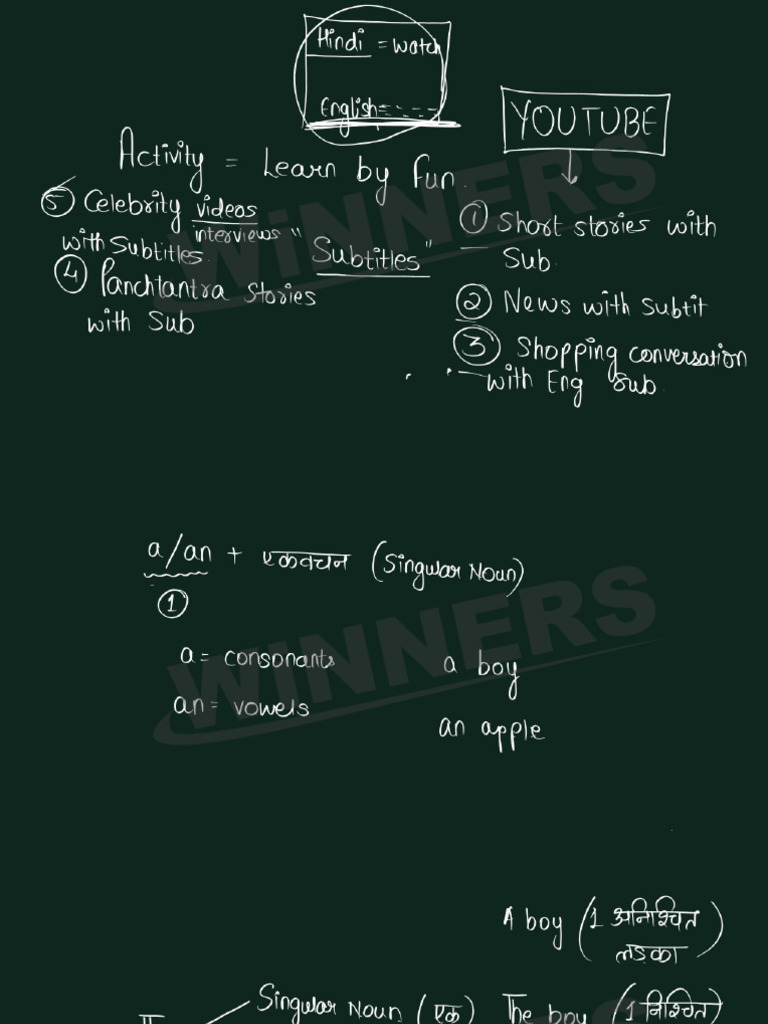 Hindi = watch
English = - - - -
YOUTUBE
Activity = Learn by fun.
⑤ Celebrity videos
interviews "
with Subtitles
"Subtitles"
④ Panchtantra Stories
with Sub
① Short stories with
Sub.
② News with Subtit
③ Shopping conversation
with Eng Sub.
WiNNERS
a/an + एकवचन (Singular Noun)
①
a = consonants
an = vowels
a boy
an apple
WiNNERS
A boy (1 अनिश्चित
लड़का)
Singular Noun (एक) The boy (1 निश्चित)